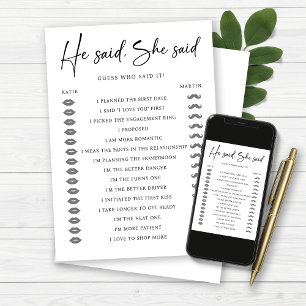 He said, She said
GUESS WHO SAID IT!
KATIE MARTIN
I PLANNED THE FIRST DATE
I SAID "I LOVE YOU" FIRST
I PICKED THE ENGAGEMENT RING
I PROPOSED
I AM MORE ROMANTIC
I WEAR THE PANTS IN THE RELATIONSHIP
I'M PLANNING THE HONEYMOON
I'M THE BETTER DANCER
I'M THE FUNNY ONE
I'M THE BETTER DRIVER
I INITIATED THE FIRST KISS
I TAKE LONGER TO GET READY
I'M THE NEAT ONE
I'M MORE PATIENT
I LOVE TO SHOP MORE
He said, She said